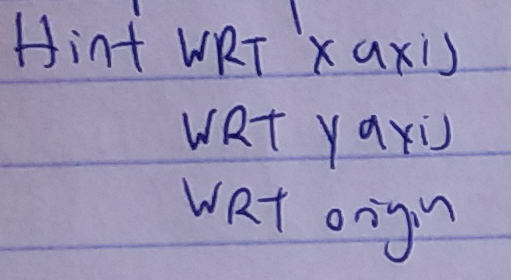 Hint WRT x axis
WRT y axis
WRT origin